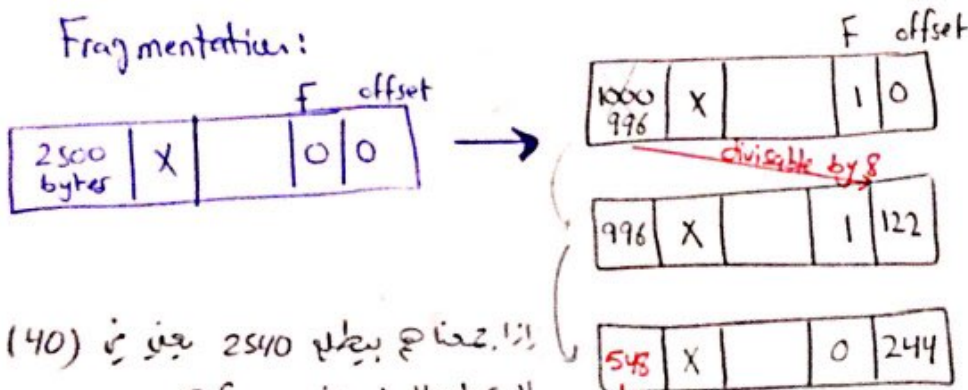 Fragmentation:
F offset
2500 bytes X 0 0
F offset
1000
996 X 1 0
divisable by 8
996 X 1 122
548 X 0 244
إذا جمعناهم بيطلع 2540 يعني في (40)